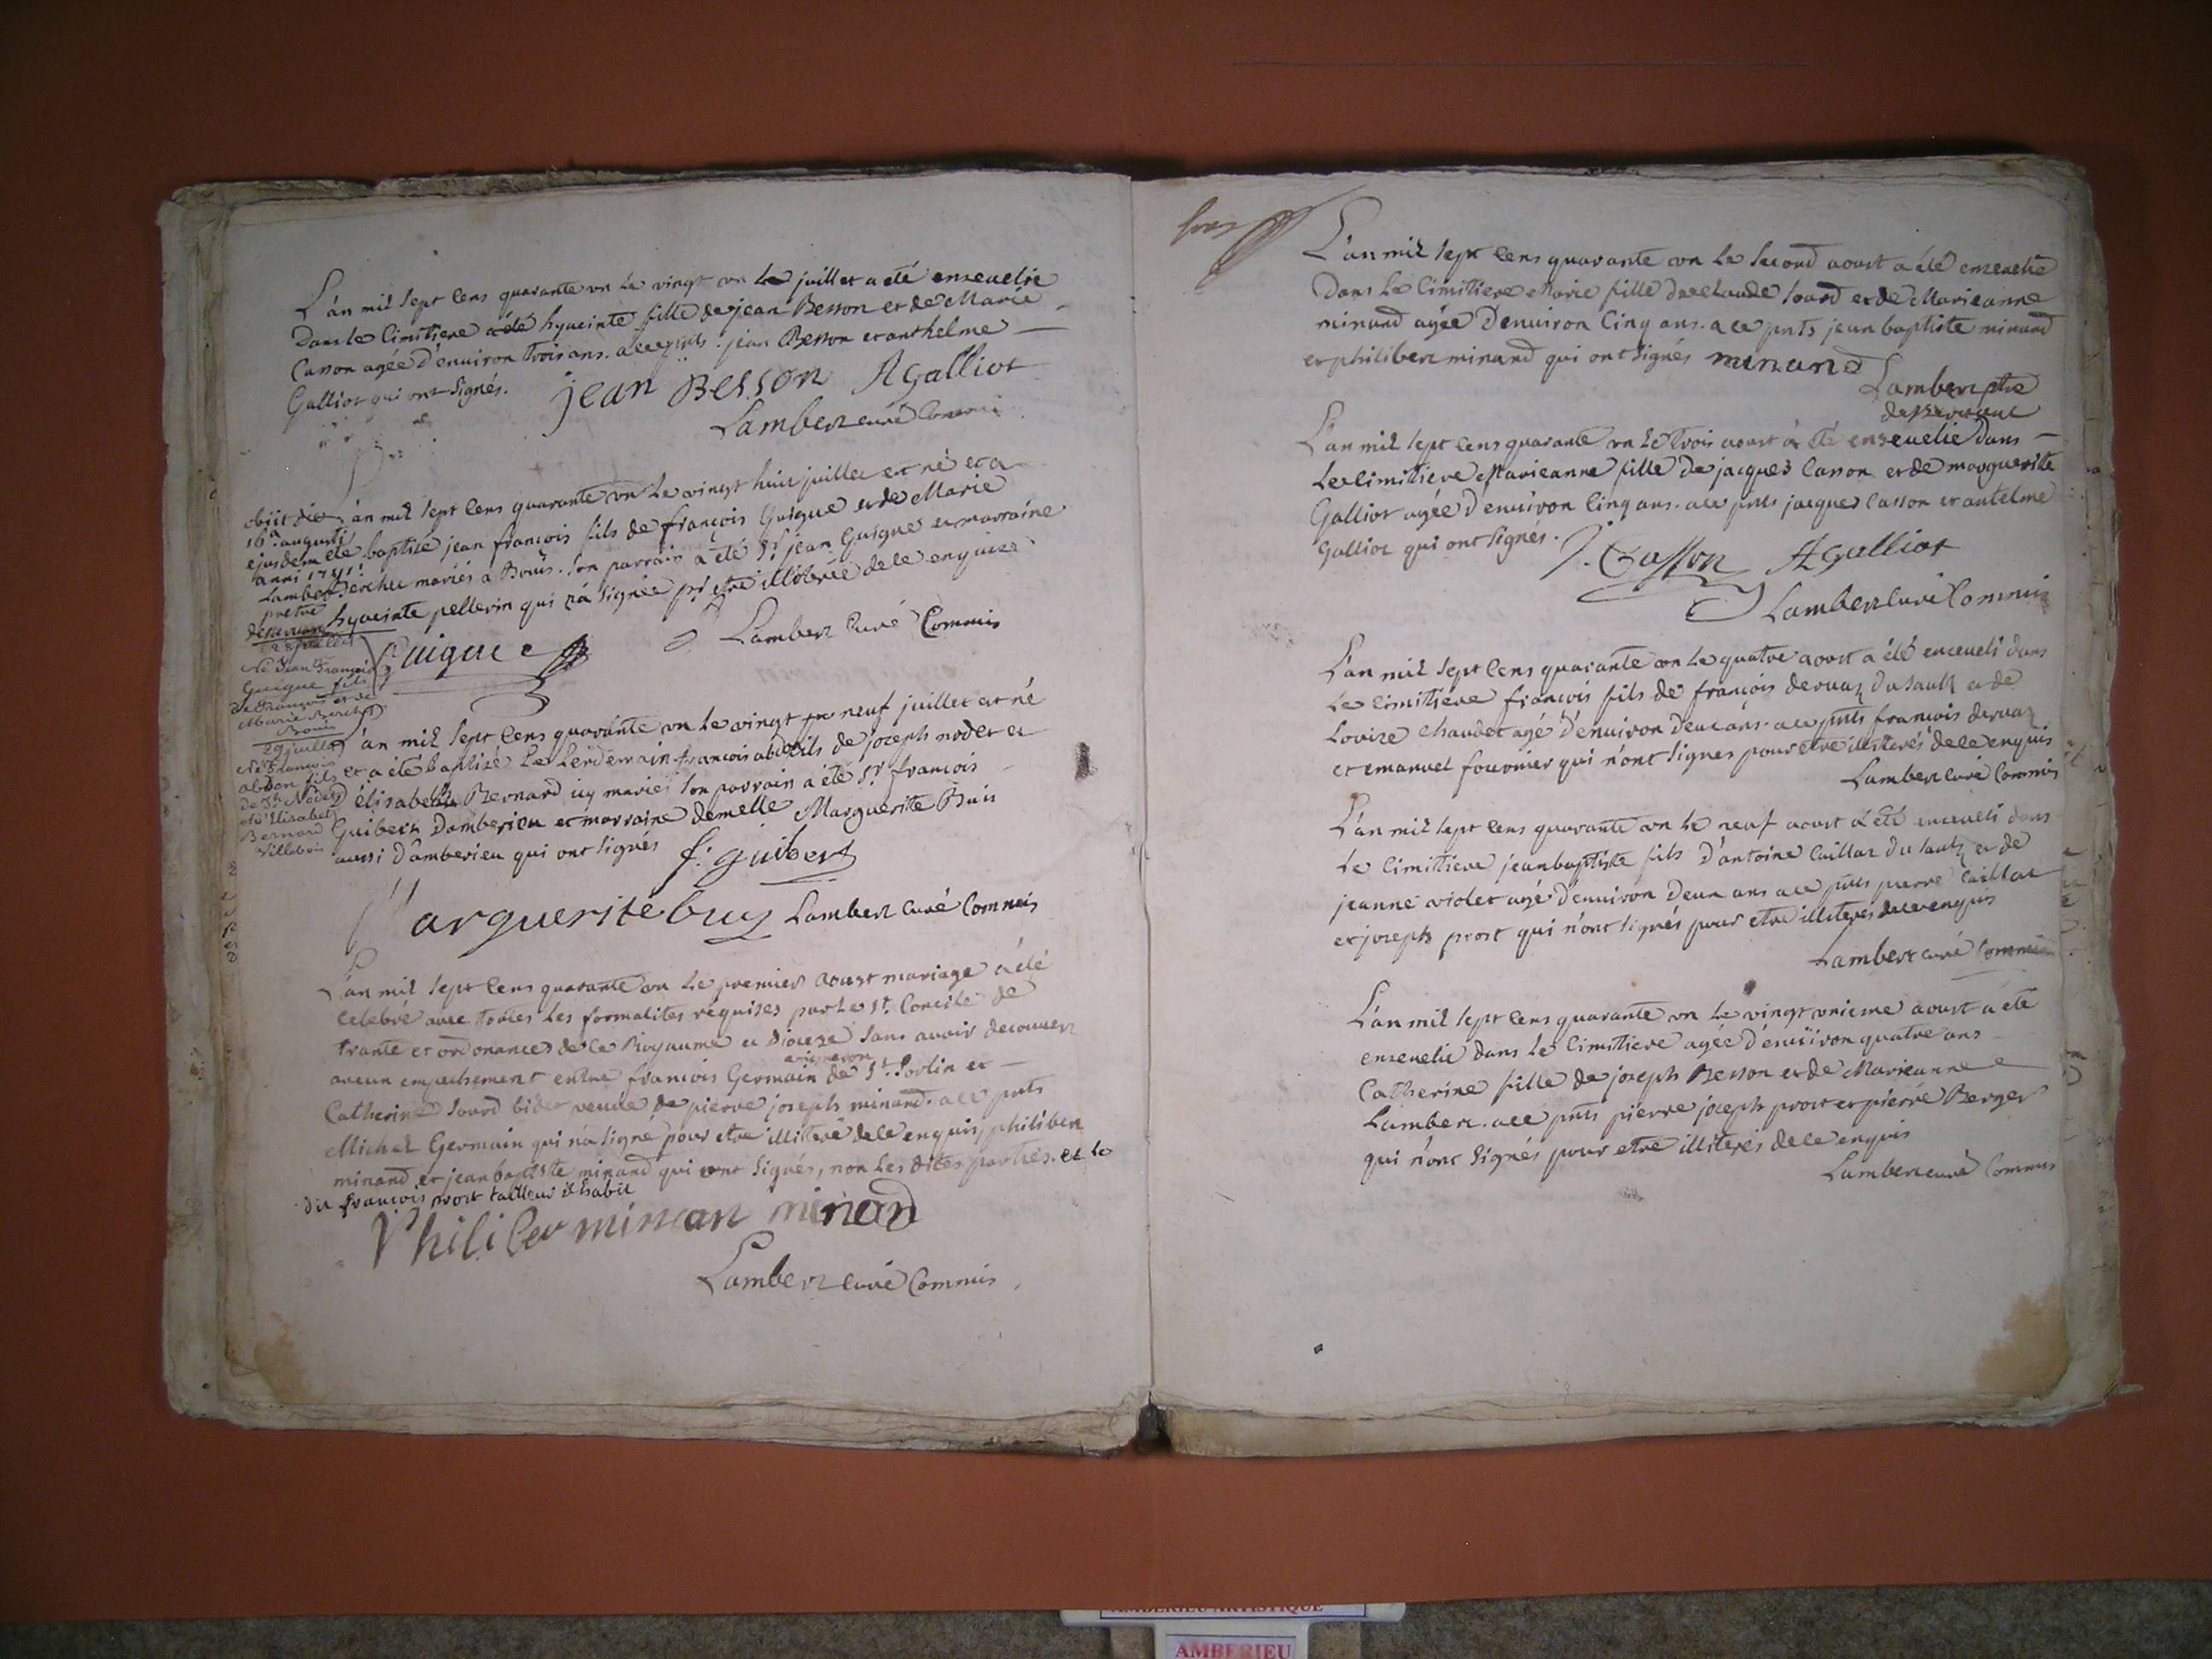 L'an mil sept cens quarante un le vingt un le juillet a été enseuelie
Dans le cimitiere a été hyacinte fille de jean Besson et de Marie
Casson agée d'enuiron trois ans. a ce pnts. jean Besson et anthelme
Galliot qui ont signés. jean Besson AGalliot
Lambert curé Commis
L'an mil sept cens quarante un le vingt huit juillet est né et a
été baptisé jean francois fils de françois Guigue et de Marie
Berchu mariés a Boüis. son parrain a été Sr jean Guigue et marraine
hyacinte pellerin qui n'a signée pr etre illiterée de ce enquise
Guigue Lambert Curé Commis
obiit die
16a augusti
ejusdem
anni 1741
Lambert
pretre
deseruant
28 juillet
Né Jean François
Guigue fils
de François et de
Marie Berchu
Bouis
L'an mil sept cens quarante un le vingt neuf juillet est né
et a été baptisé le lendemain francois abdon fils de joseph nodet et
d'élisabeth Bernard icy mariés son parrain a été Sr francois
Guibert d'amberieu et marraine demelle Marguerite Buis
aussi d'amberieu qui ont signés f. guibert
Marguerite buy Lambert curé Commis
29 juillet
Né François
abdon fils
de Jh Nodet
et d'Elisabeth
Bernard
Villebois
L'an mil sept cens quarante un le premier aoust mariage a été
celebré auec toutes les formalites requises par le St. Concile de
trante et ordonances de ce Royaume et Diocese sans auoir decouuert
aucun empechement entre francois Germain vigneron de St. Sorlin et
Catherine sourd veuue de pierre joseph minand. a ce pnts
Michel Germain qui n'a signé pour etre illiteré de ce enquis, philibert
minand et jean baptiste minand qui ont signés, non les dites parties. et le
dit françois prost tailleur d'habit
Philiber minan minand
Lambert curé Commis
L'an mil sept cens quarante un le second aoust a été enseuelie
Dans le cimitiere Marie fille de claude sourd et de Marieanne
minand agée d'enuiron cinq ans. a ce pnts jean baptiste minand
et philibert minand qui ont signés minand
Lambert ptre
desseruant
L'an mil sept cens quarante un le trois aoust a été enseuelie dans
le cimitiere Marieanne fille de jacques Casson et de marguerite
Galliot agée d'enuiron cinq ans. a ce pnts jacques Casson et antelme
Galliot qui ont signés. J. Casson AGalliot
Lambert curé Commis
L'an mil sept cens quarante un le quatre aoust a été enceueli dans
le cimitiere françois fils de françois deruaz du sault et de
Louise chaudet agé d'enuiron deux ans. a ce pnts francois deruaz
et emanuel fournier qui n'ont signes pour etre illiterés de ce enquis
Lambert curé Commis
L'an mil sept cens quarante un le neuf aoust a été enceueli dans
le cimitiere jean baptiste fils d'antoine Caillat du sault et de
jeanne violet agé d'enuiron deux ans a ce pnts pierre Caillat
et joseph prost qui n'ont signés pour etre illiteres de ce enquis
Lambert curé Commis
L'an mil sept cens quarante un le vingt unieme aoust a été
enseuelie dans le cimitiere agée d'enuiron quatre ans
Catherine fille de joseph Besson et de Marieanne
Lambert. a ce pnts pierre joseph prost et pierre Berger
qui n'ont signés pour etre illiterés de ce enquis
Lambert curé Commis
AMBERIEU ARTISTIQUE
AMBERIEU